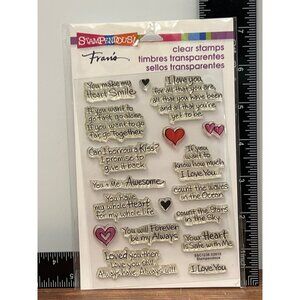 STAMPENDOUS!
Fran's
clear stamps
timbres transparentes
sellos transparentes
You make my
Heart Smile
I love you
for all that you are
all that you have been
and all that you're
yet to be.
If you want to
go fast go alone
If you want to go
far go together
Can I borrow a Kiss?
I promise to
give it back.
If you
want to
know how much
I Love You...
You + Me = Awesome
count the waves
in the Ocean
You have
my whole Heart
for my whole life.
count the Stars
in the Sky
You will Forever
be my Always
Your Heart
is Safe with Me
Loved you then
Love you still
Always have Always will
I Love You
Stampendous